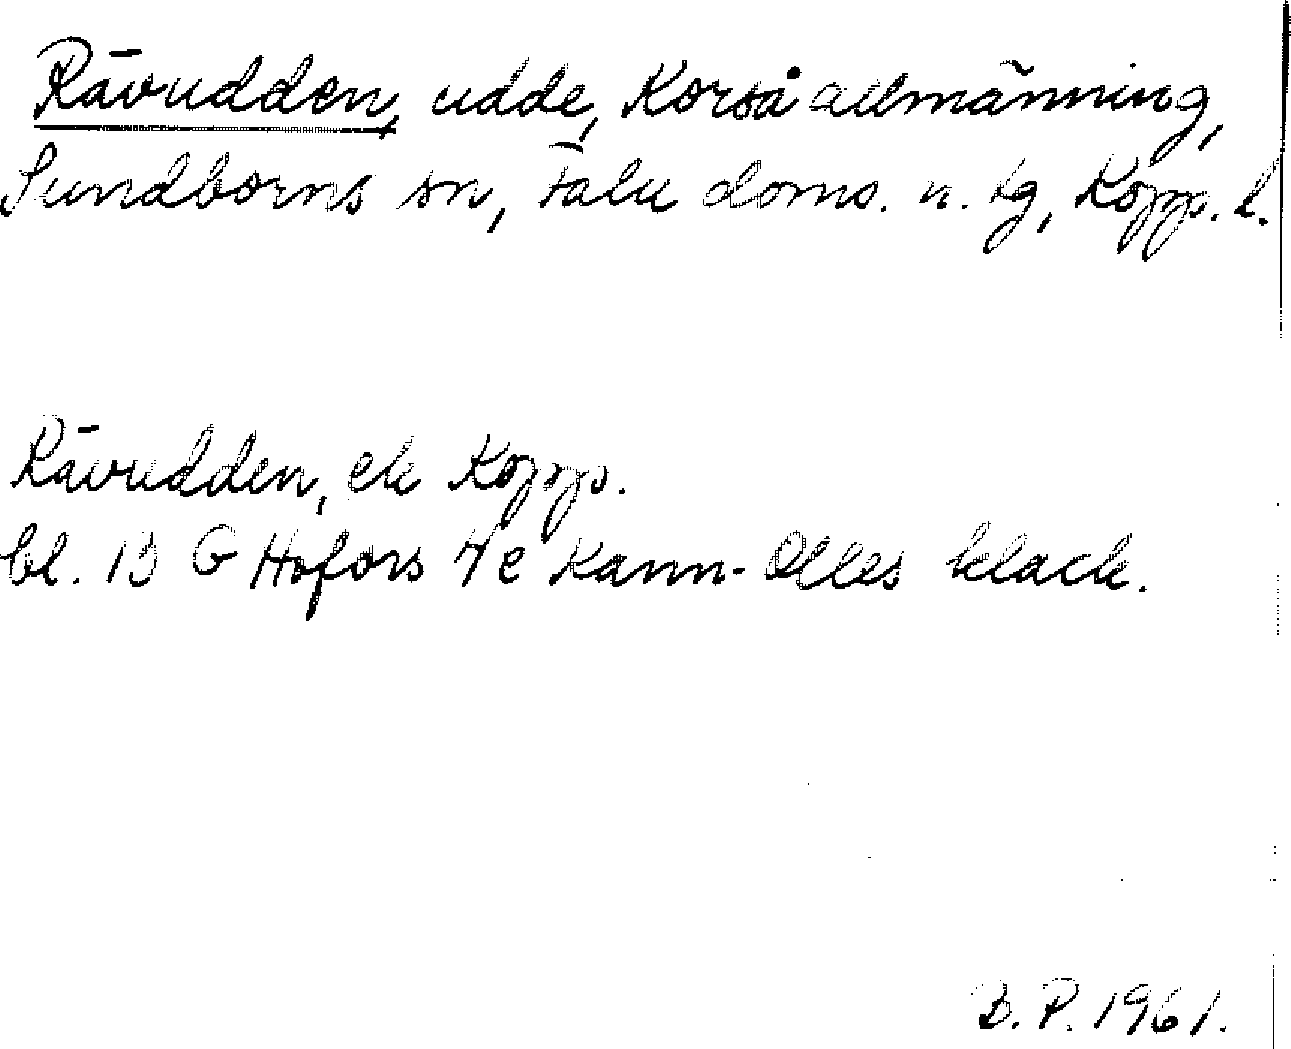 Rävudden, udde, Korså allmänning,
Sundborns sn, Falu doms. n. tg, Kopp. l.
Rävudden, ek Kopp.
bl. 13 G Hofors 7e Kann-Olles klack.
B. P. 1961.